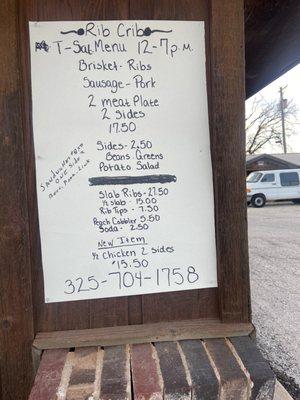 Rib Crib
T-Sat Menu 12-7p.m.
Brisket-Ribs
Sausage-Pork
2 meat Plate
2 sides
17.50
Sides-2.50
Beans. Greens
Potato Salad
Slab Ribs-27.50
½ slab - 15.00
Rib Tips - 7.50
Peach Cobbler 5.50
Soda - 2.50
New Item
½ Chicken 2 sides
$15.50
325-704-1758